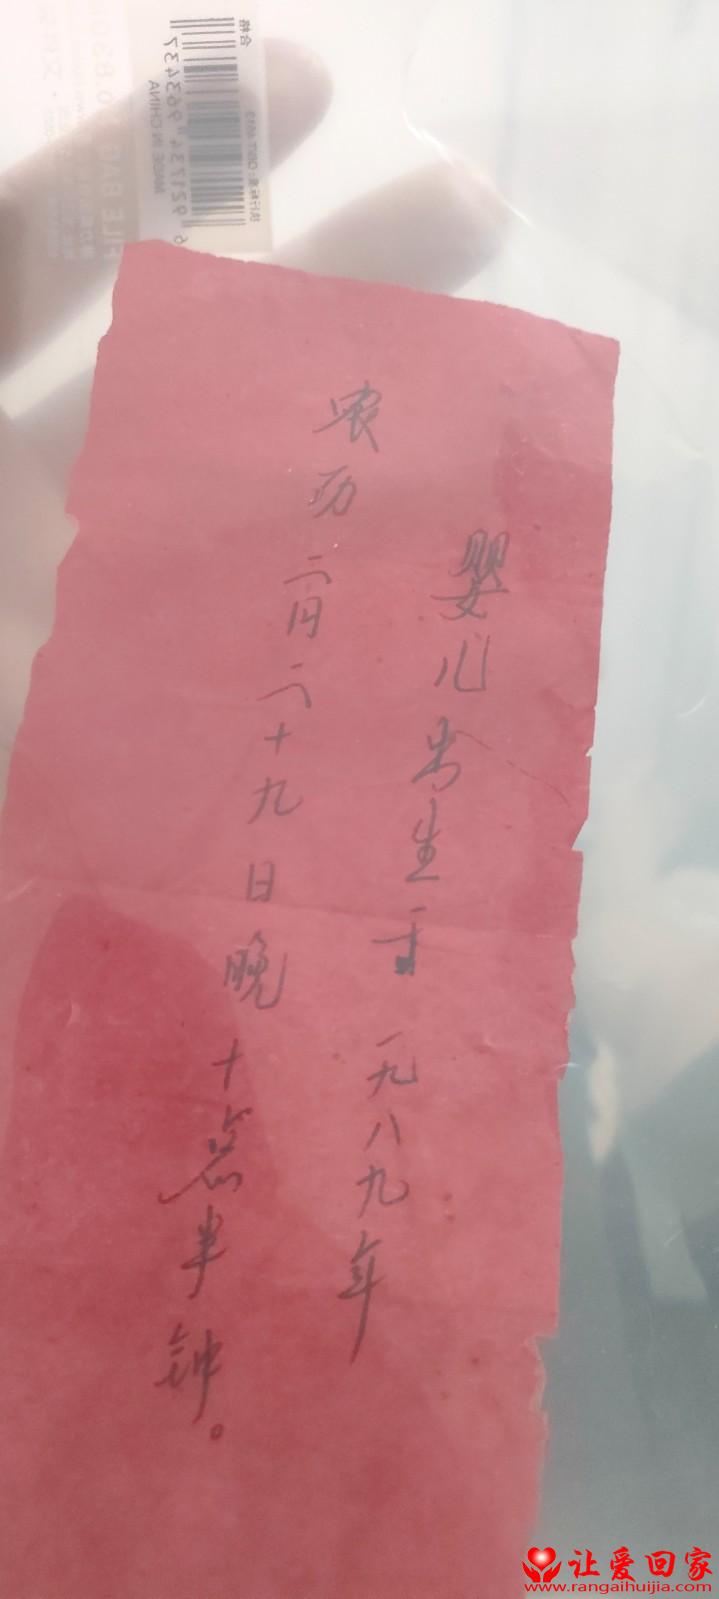 婴儿出生于一九八九年
农历二月二十九日晚十点半钟。
MADE IN CHINA
让爱回家
www.rangaihuijia.com